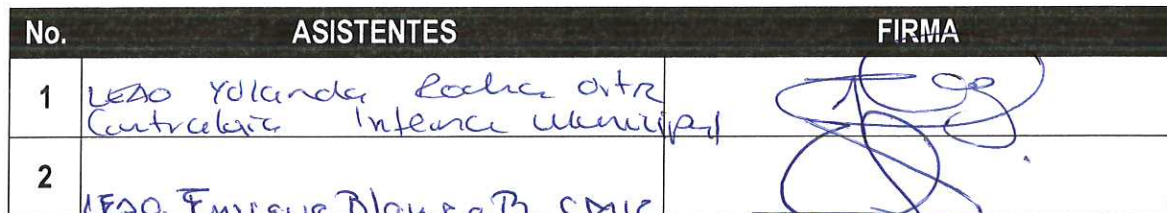 No. ASISTENTES FIRMA
1 LEAO Yolanda Rocha Ortz
Contraloría Interna Municipal
2
LEAO Enrique Blanco B.